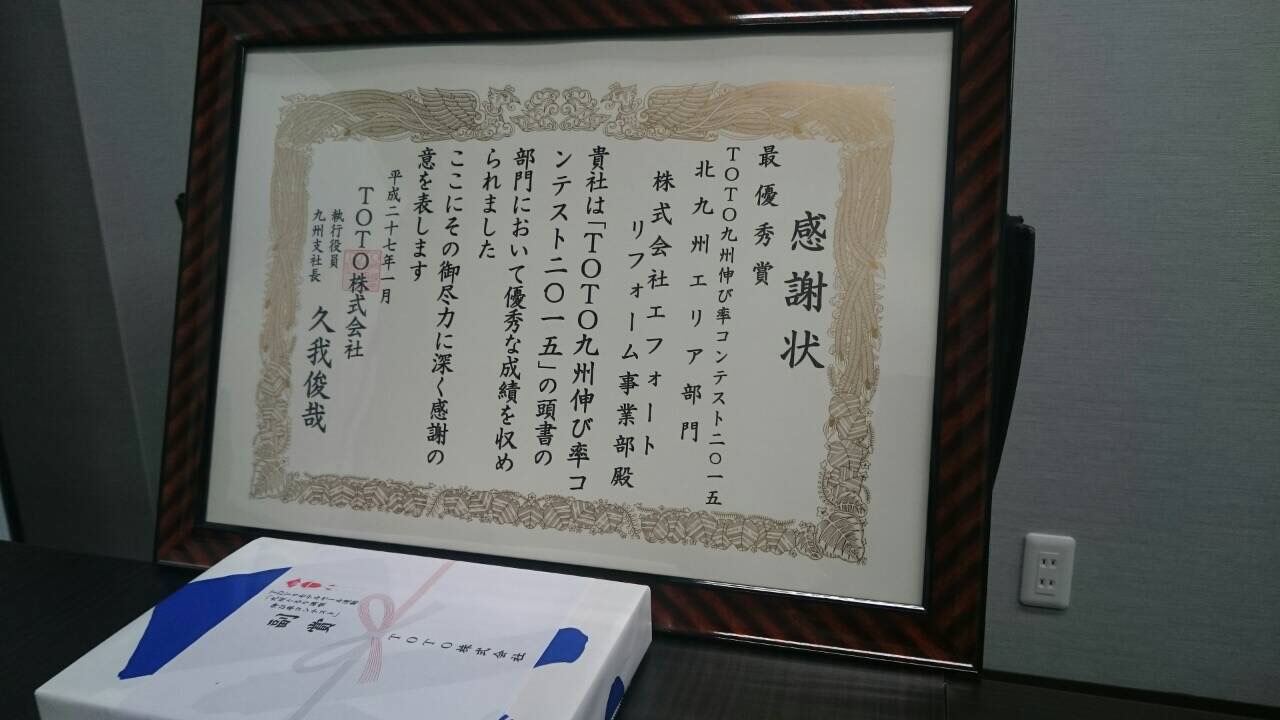 感謝状
最優秀賞
TOTO九州伸び率コンテスト二〇一五
北九州エリア部門
株式会社エフォート
リフォーム事業部殿
貴社は「TOTO九州伸び率コ
ンテスト二〇一五」の頭書の
部門において優秀な成績を収め
られました
ここにその御尽力に深く感謝の
意を表します
平成二十七年一月
TOTO株式会社
執行役員
九州支社長
久我俊哉
TOTO株式会社